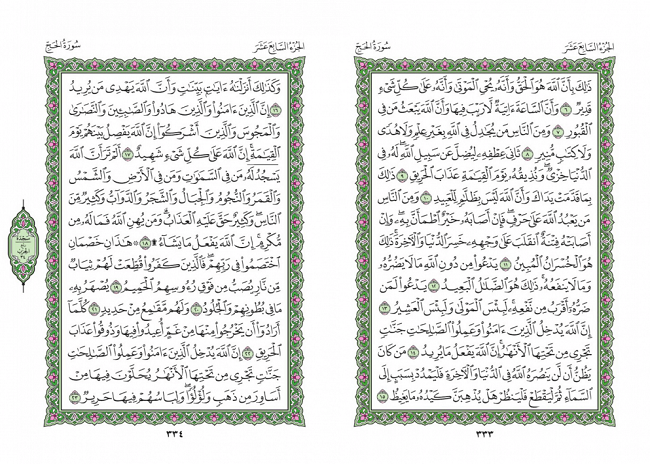 الجُزْءُ السَّابِعَ عَشَرَ
سُورَةُ الحَجّ
ذَٰلِكَ بِأَنَّ ٱللَّهَ هُوَ ٱلْحَقُّ وَأَنَّهُۥ يُحْىِ ٱلْمَوْتَىٰ وَأَنَّهُۥ عَلَىٰ كُلِّ شَىْءٍ
قَدِيرٌ ٦ وَأَنَّ ٱلسَّاعَةَ ءَاتِيَةٌ لَّا رَيْبَ فِيهَا وَأَنَّ ٱللَّهَ يَبْعَثُ مَن فِى
ٱلْقُبُورِ ٧ وَمِنَ ٱلنَّاسِ مَن يُجَٰدِلُ فِى ٱللَّهِ بِغَيْرِ عِلْمٍ وَلَا هُدًى
وَلَا كِتَٰبٍ مُّنِيرٍ ٨ ثَانِىَ عِطْفِهِۦ لِيُضِلَّ عَن سَبِيلِ ٱللَّهِ لَهُۥ فِى
ٱلدُّنْيَا خِزْىٌ وَنُذِيقُهُۥ يَوْمَ ٱلْقِيَٰمَةِ عَذَابَ ٱلْحَرِيقِ ٩ ذَٰلِكَ
بِمَا قَدَّمَتْ يَدَاكَ وَأَنَّ ٱللَّهَ لَيْسَ بِظَلَّٰمٍ لِّلْعَبِيدِ ١٠ وَمِنَ ٱلنَّاسِ
مَن يَعْبُدُ ٱللَّهَ عَلَىٰ حَرْفٍ فَإِنْ أَصَابَهُۥ خَيْرٌ ٱطْمَأَنَّ بِهِۦ وَإِنْ
أَصَابَتْهُ فِتْنَةٌ ٱنقَلَبَ عَلَىٰ وَجْهِهِۦ خَسِرَ ٱلدُّنْيَا وَٱلْءَاخِرَةَ ذَٰلِكَ
هُوَ ٱلْخُسْرَانُ ٱلْمُبِينُ ١١ يَدْعُوا۟ مِن دُونِ ٱللَّهِ مَا لَا يَضُرُّهُۥ
وَمَا لَا يَنفَعُهُۥ ذَٰلِكَ هُوَ ٱلضَّلَٰلُ ٱلْبَعِيدُ ١٢ يَدْعُوا۟ لَمَن
ضَرُّهُۥٓ أَقْرَبُ مِن نَّفْعِهِۦ لَبِئْسَ ٱلْمَوْلَىٰ وَلَبِئْسَ ٱلْعَشِيرُ ١٣
إِنَّ ٱللَّهَ يُدْخِلُ ٱلَّذِينَ ءَامَنُوا۟ وَعَمِلُوا۟ ٱلصَّٰلِحَٰتِ جَنَّٰتٍ
تَجْرِى مِن تَحْتِهَا ٱلْأَنْهَٰرُ إِنَّ ٱللَّهَ يَفْعَلُ مَا يُرِيدُ ١٤ مَن كَانَ
يَظُنُّ أَن لَّن يَنصُرَهُ ٱللَّهُ فِى ٱلدُّنْيَا وَٱلْءَاخِرَةِ فَلْيَمْدُدْ بِسَبَبٍ إِلَى
ٱلسَّمَآءِ ثُمَّ لْيَقْطَعْ فَلْيَنظُرْ هَلْ يُذْهِبَنَّ كَيْدُهُۥ مَا يَغِيظُ ١٥
٣٣٣
الجُزْءُ السَّابِعَ عَشَرَ
سُورَةُ الحَجّ
وَكَذَٰلِكَ أَنزَلْنَٰهُ ءَايَٰتٍۭ بَيِّنَٰتٍ وَأَنَّ ٱللَّهَ يَهْدِى مَن يُرِيدُ
١٦ إِنَّ ٱلَّذِينَ ءَامَنُوا۟ وَٱلَّذِينَ هَادُوا۟ وَٱلصَّٰبِـِٔينَ وَٱلنَّصَٰرَىٰ
وَٱلْمَجُوسَ وَٱلَّذِينَ أَشْرَكُوٓا۟ إِنَّ ٱللَّهَ يَفْصِلُ بَيْنَهُمْ يَوْمَ
ٱلْقِيَٰمَةِ إِنَّ ٱللَّهَ عَلَىٰ كُلِّ شَىْءٍ شَهِيدٌ ١٧ أَلَمْ تَرَ أَنَّ ٱللَّهَ
يَسْجُدُ لَهُۥ مَن فِى ٱلسَّمَٰوَٰتِ وَمَن فِى ٱلْأَرْضِ وَٱلشَّمْسُ
وَٱلْقَمَرُ وَٱلنُّجُومُ وَٱلْجِبَالُ وَٱلشَّجَرُ وَٱلدَّوَآبُّ وَكَثِيرٌ مِّنَ
ٱلنَّاسِ وَكَثِيرٌ حَقَّ عَلَيْهِ ٱلْعَذَابُ وَمَن يُهِنِ ٱللَّهُ فَمَا لَهُۥ مِن
مُّكْرِمٍ إِنَّ ٱللَّهَ يَفْعَلُ مَا يَشَآءُ ۩ ١٨ ۞ هَٰذَانِ خَصْمَانِ
ٱخْتَصَمُوا۟ فِى رَبِّهِمْ فَٱلَّذِينَ كَفَرُوا۟ قُطِّعَتْ لَهُمْ ثِيَابٌ
مِّن نَّارٍ يُصَبُّ مِن فَوْقِ رُءُوسِهِمُ ٱلْحَمِيمُ ١٩ يُصْهَرُ بِهِۦ
مَا فِى بُطُونِهِمْ وَٱلْجُلُودُ ٢٠ وَلَهُم مَّقَٰمِعُ مِنْ حَدِيدٍ ٢١ كُلَّمَآ
أَرَادُوٓا۟ أَن يَخْرُجُوا۟ مِنْهَا مِنْ غَمٍّ أُعِيدُوا۟ فِيهَا وَذُوقُوا۟ عَذَابَ
ٱلْحَرِيقِ ٢٢ إِنَّ ٱللَّهَ يُدْخِلُ ٱلَّذِينَ ءَامَنُوا۟ وَعَمِلُوا۟ ٱلصَّٰلِحَٰتِ
جَنَّٰتٍ تَجْرِى مِن تَحْتِهَا ٱلْأَنْهَٰرُ يُحَلَّوْنَ فِيهَا مِنْ
أَسَاوِرَ مِن ذَهَبٍ وَلُؤْلُؤًا وَلِبَاسُهُمْ فِيهَا حَرِيرٌ ٢٣
٣٣٤
سَجْدَة